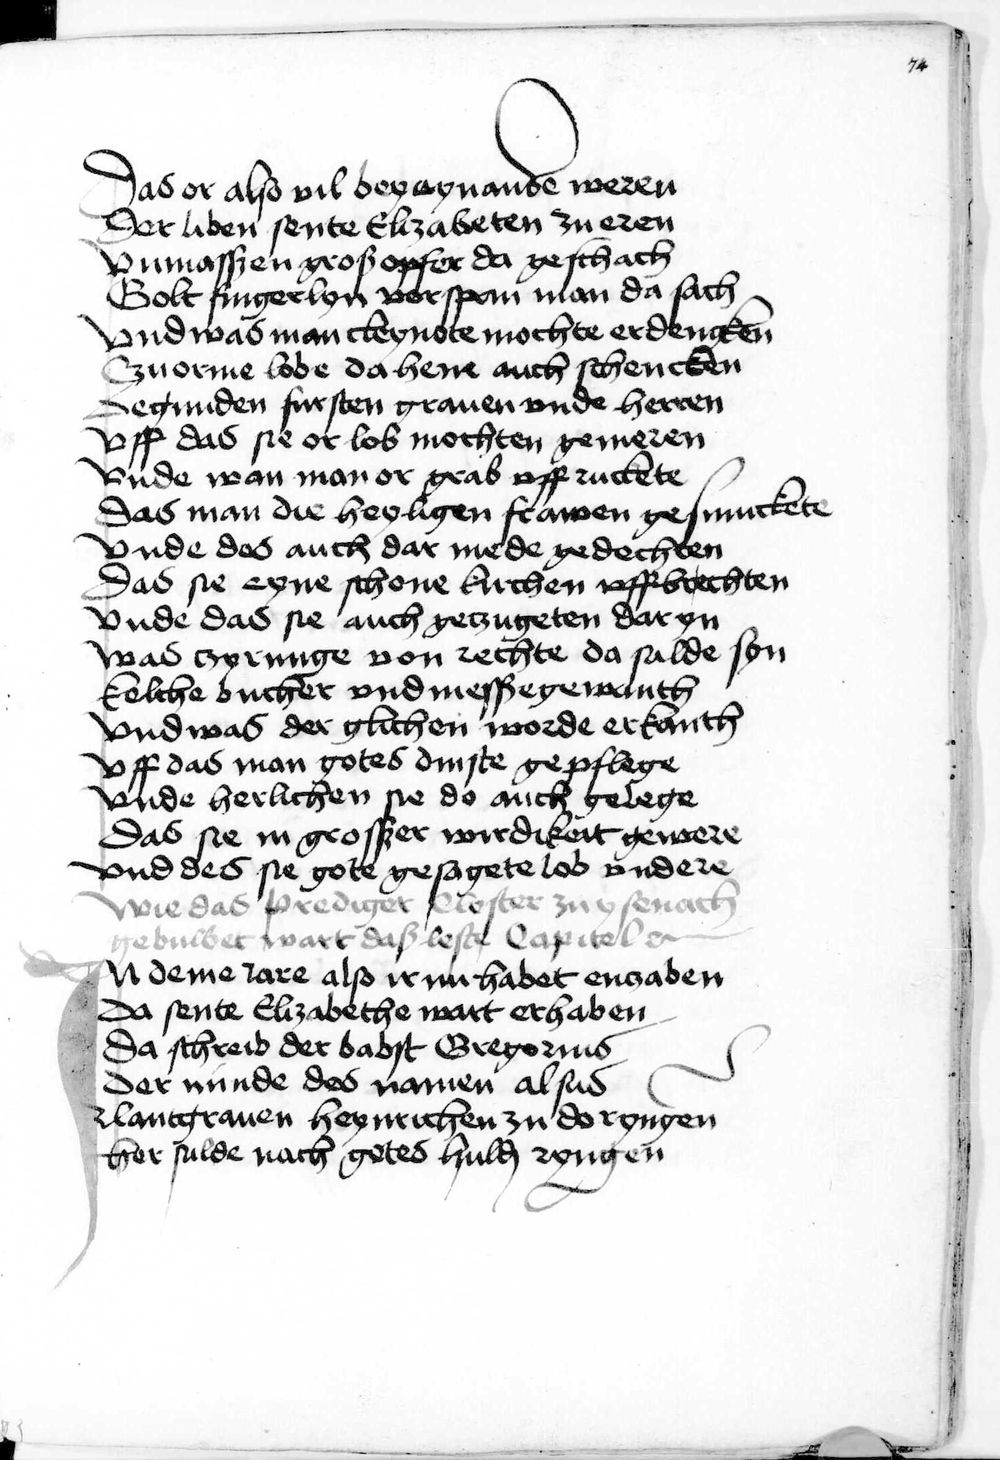 74
Das or also vil bey eynande weren
Der liben sente Elizabeten zu eren
Vnmasszen grosz opfer da geschach
Golt fingerlyn vorspan man da sach
Vnd was man cleynote mochte erdencken
Czu orme lobe da hene auch schencken
Begunden fursten grauen vnde herren
Vff das sie or lob mochten gemeren
Vnde wan man or grab vff ruckete
Das man die heyligen frawen gesmuckete
Vnde des auch dar mede gedechten
Das sie eyne schone kirchen vffbrechten
Vnde das sie auch getzugeten daryn
Was czyrunge von rechte da sulde syn
Kelche bucher vnd messzegewanth
Vnd was der glichen worde erkanth
Vff das man gotes dinste gepflege
Vnde herlichen sie do auch gelege
Das sie in grosszer wirdikeit gewere
Vnd des sie gote gesagete lob vnd ere
Wie das Prediger Closter zu ysenach
gebuwet wart dasz leste Capitel
IN deme Jare also ir nu habet entzaben
Da sente Elizabethe wart erhaben
Da schreib der babst Gregorius
Der nunde des namen alsus
Lantgrauen heynrichen zu doryngen
Her sulde nach gotes huld ryngen